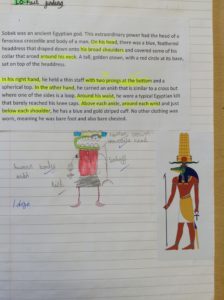 LO: Fact finding
Sobek was an ancient Egyptian god. This extraordinary power had the head of a
ferocious crocodile and body of a man. On his head, there was a blue, feathered
headdress that draped down onto his broad shoulders and covered some of his
collar that went around his neck. A tall, golden crown, with a red circle at its base,
sat on top of the headdress.
In his right hand, he held a thin staff with two prongs at the bottom and a
spherical top. In the other hand, he carried an ankh that is similar to a cross but
where one of the sides is a loop. Around his waist, he wore a typical Egyptian kilt
that barely reached his knee caps. Above each ankle, around each wrist and just
below each shoulder, he has a blue and gold striped cuff. No other clothing was
worn, meaning he was bare foot and also bare chested.
human body
ankh
kilt